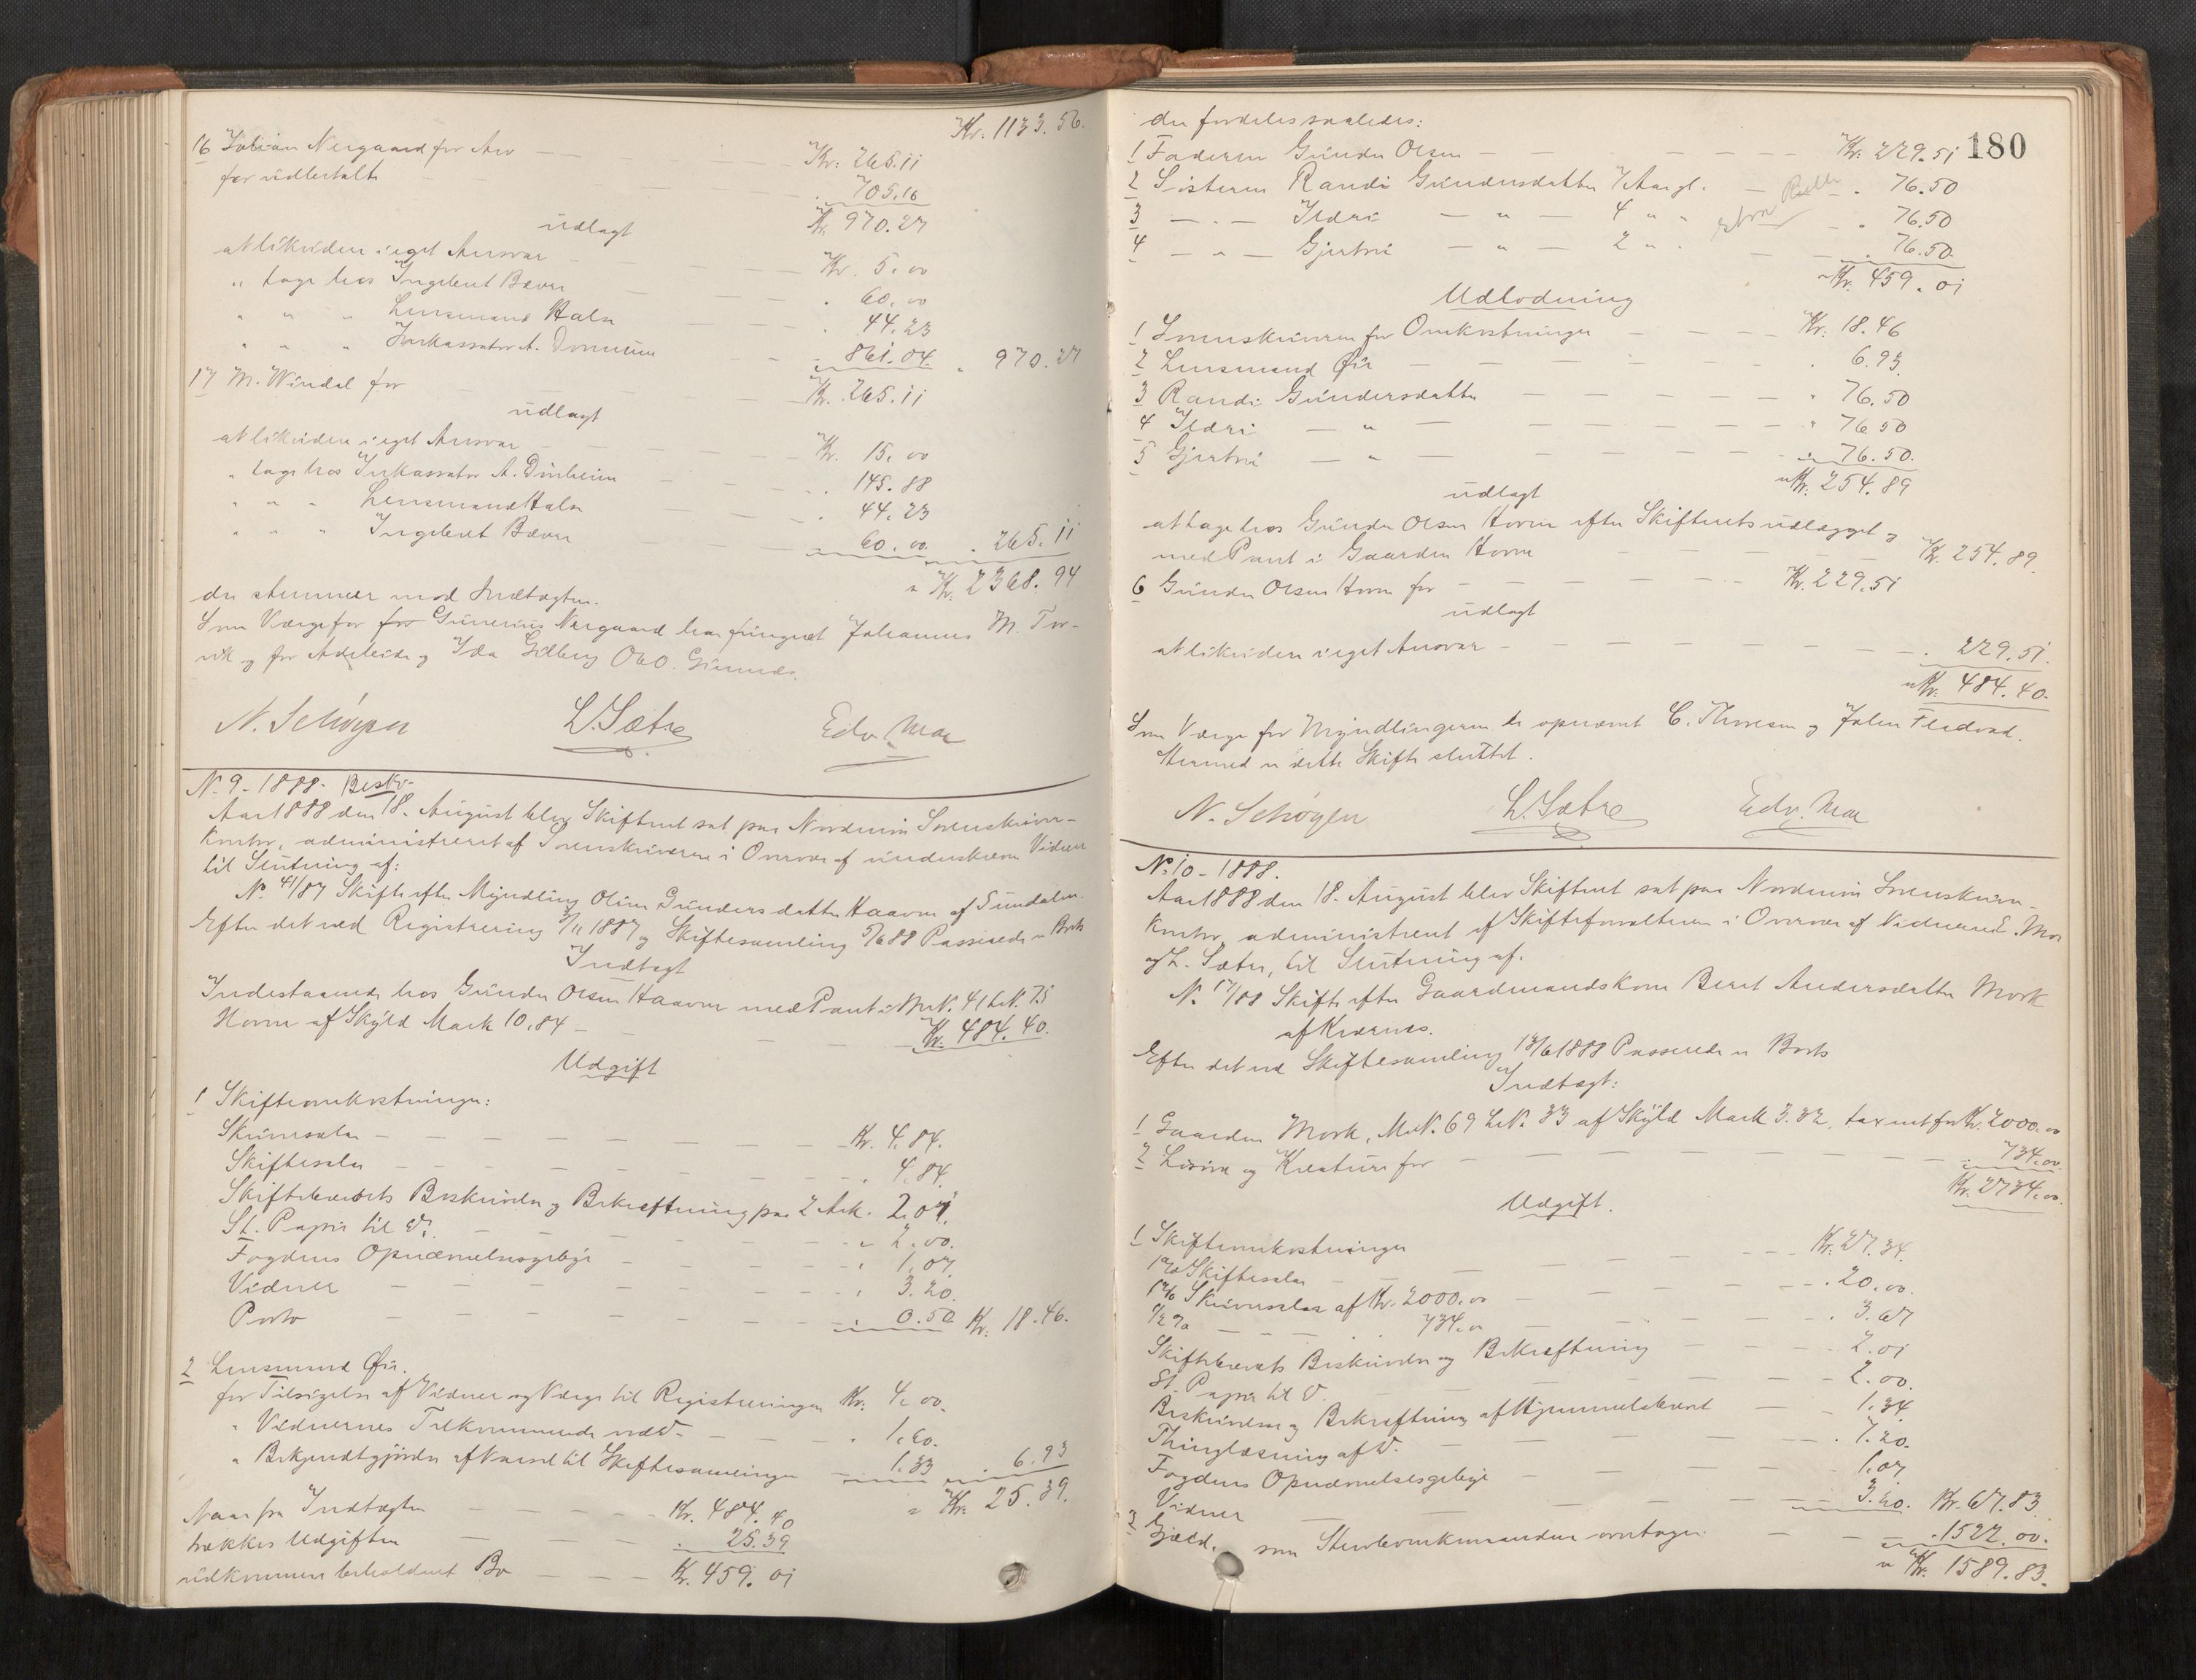 Kr: 1133.56.
16 Julian Nergaard for Arv — Kr: 265.11
for udbetalt — 705.16
Kr. 970.27
udlagt
at likvidere i eget Ansvar — Kr. 5.00
" tage hos Ingebrt Bæver — " 60.00
" " " Lensmand Halse — " 44.23
" " " Inkassator A. Donheim — " 861.04. " 970.27
17 M. Windal for — Kr. 265.11
udlagt
at likvidere i eget Ansvar — Kr. 15.00
" tage hos Inkassator A. Dönheim — " 145.88
" " " Lensmand Halse — " 44.23
" " " Ingebrt Bæver — " 60.00. " 265.11
" Kr. 2368.94
der stemmer med Indtægten.
Som Værge for for Gunerius Nergaard har fungeret Johannes M. Tor-
vik og for Adeleide og Ida Gilberg O60. Grinnes.
N. Schöyen L. Sætre Edv. Moe
N. 9 - 1888. Beskr.
Aar 1888 den 18. August blev Skifteret sat paa Nordmøre Sorenskriver-
kontor, administreret af Sorenskriveren i Overvær af underskrevne Vidner
til Slutning af:
N. 41/87 Skifte efter Myndling Oline Gundersdatter Haavne af Sundalen.
Efter det ved Registrering 3/11 1887 og Skiftesamling 5/6 88 Passerede er Boets
Indtægt
Indestaaende hos Gunder Olsen Haavne med Pant i MrN. 41 LN. 75
Hovne af Skyld Mark 10,84 — Kr. 484.40.
Udgift
1 Skifteomkostninger:
Skriversalær — Kr. 4.84.
Skiftesalær — " 4.84.
Skiftebrevets Beskrivelse og Bekræftning paa 2 Ark. 2.01.
St. Papir til D: — " 2.00.
Fogdens Opnævnelsesgebyr — " 1.07
Vidner — " 3.20.
Porto — " 0.50 Kr. 18.46.
2 Lensmand Øie.
for Tilsigelse af Vidner og Værge til Registreringen Kr. 4.00.
" Vidnernes Tilkommende ved D. — " 1.60.
" Bekjendtgjørelse af Varsel til Skiftesamlingen — 1.33 " 6.93
" Kr. 25.39.
Naar fra Indtægten — Kr. 484.40
trækkes Udgiften — " 25.39
udkommer beholdent Bo — Kr. 459.01
180
der fordeles saaledes:
1 Faderen Gunder Olsen — Kr: 229.51
2 Søsteren Randi Gundersdatter 7 Aar gl. — " 76.50
3 — " — Ildri — " — 4 " " — " 76.50
4 — " — Gjertrú — " — 2 " " — 76.50.
" Kr. 459.01
Udlodning
1 Sorenskriveren for Omkostninger — Kr: 18.46
2 Lensmand Øie — " 6.93.
3 Randi Gundersdatter — " 76.50
4 Ildri — " — " 76.50
5 Gjertrú — " — 76.50.
" Kr: 254.89
udlagt
at tage hos Gunder Olsen Hovne efter Skifterets udlægget og
med Pant i Gaarden Hovne — Kr. 254.89.
6 Gunder Olsen Hovne for — Kr. 229.51
udlagt
at likvidere i eget Ansvar — " 229.51.
" Kr. 484.40.
Som Værge for Myndlingerne er opnævnt C. Thoresen og John Fladvad.
Hermed er dette Skifte sluttet.
N. Schöyen L. Sætre Edv. Moe
N. 10 - 1888.
Aar 1888 den 18. August blev Skifteret sat paa Nordmøre Sorenskriver-
kontor, administreret af Skifteforvalteren i Overvær af Vidnerne E. Moe
og L. Sætre, til Slutning af.
N. 17/88 Skifte efter Gaardmandskone Beret Andersdatter Mork
af Kværnes.
Efter det ved Skiftesamling 13/6 1888 Passerede er Boets
Indtægt:
1 Gaarden Mork, MrN. 69 LN. 33 af Skyld Mark 3.32, taxeret for Kr. 2000.00
2 Løsøre og Kreaturer for — " 734.00.
Kr. 2734.00.
Udgift.
1 Skifteomkostninger
1% Skiftesalær — Kr. 27.34.
1% Skriversalær af Kr. 2000.00 — " 20.00.
1/2 % — 734.00 — " 3.67
Skiftebrevets Beskrivelse og Bekræftning — 2.01
St. Papir til D. — 2.00.
Beskrivelse og Bekræftning af Hjemmelsbrevet — 1.34.
Thinglæsning af D. — " 7.20.
Fogdens Opnævnelsesgebyr — 1.07.
Vidner — 3.20. Kr. 67.83.
2 Gjæld, som Stervboenkemanden overtager — " 1522.00.
" Kr. 1589.83.